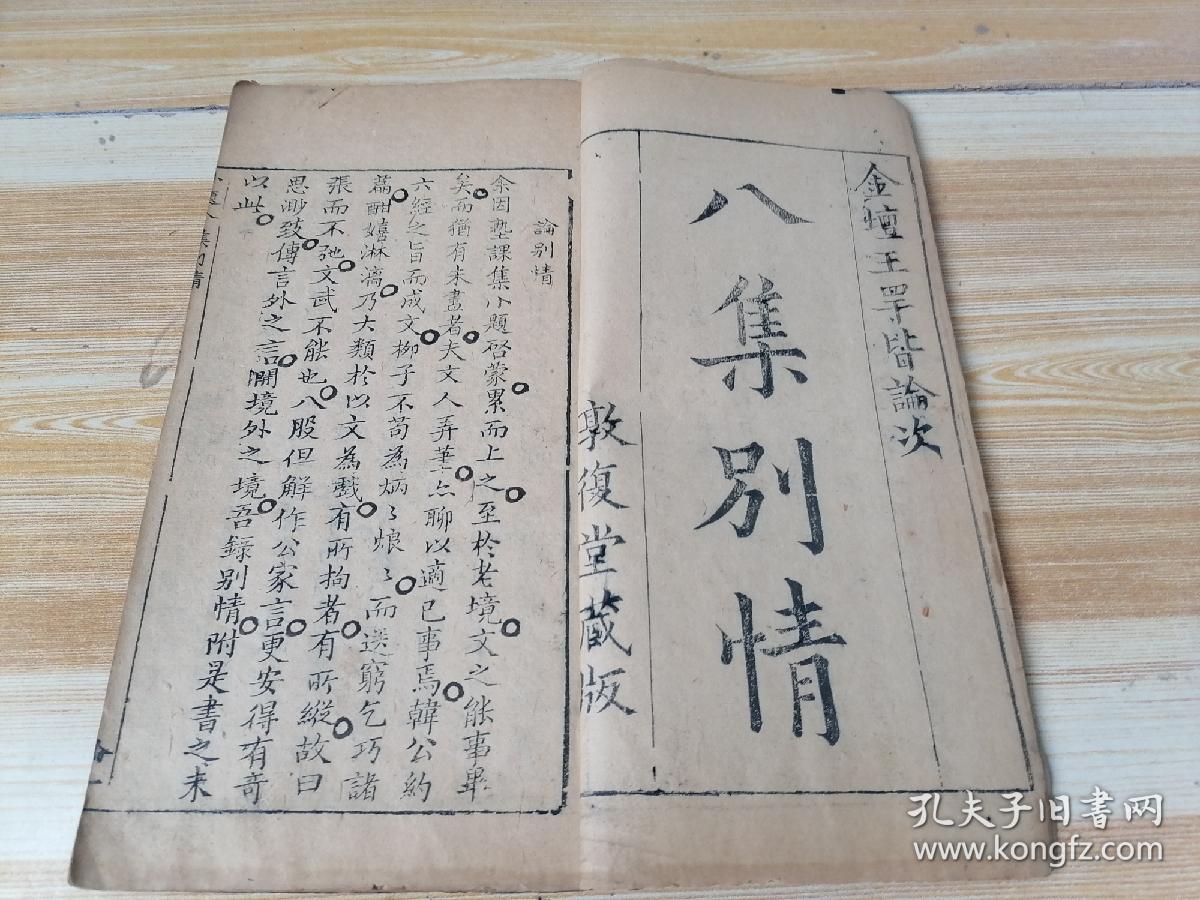 金壇王罕皆論次
八集別情
敦復堂藏版
論別情
余因塾課集八題啓蒙累而上之至於老境文之能事畢
矣而猶有未盡者夫文人弄筆亦聊以適己事焉韓公約
六經之旨而成文柳子不苟為炳〻烺〻而送窮乞巧諸
篇酣嬉淋漓乃大類於以文為戲有所拘者有所縱故曰
張而不弛文武不能也八股但解作公家言更安得有奇
思渺致傳言外之言開境外之境吾錄別情附是書之末
以此
孔夫子旧书网
www.kongfz.com